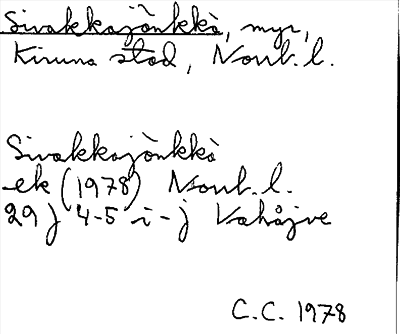 Sivakkajònkkà, myr,
Kiruna stad, Norrb. l.
Sivakkajònkkà
ek (1978) Norrb. l.
29 J 4-5 i-j Vahåjve
C.C. 1978